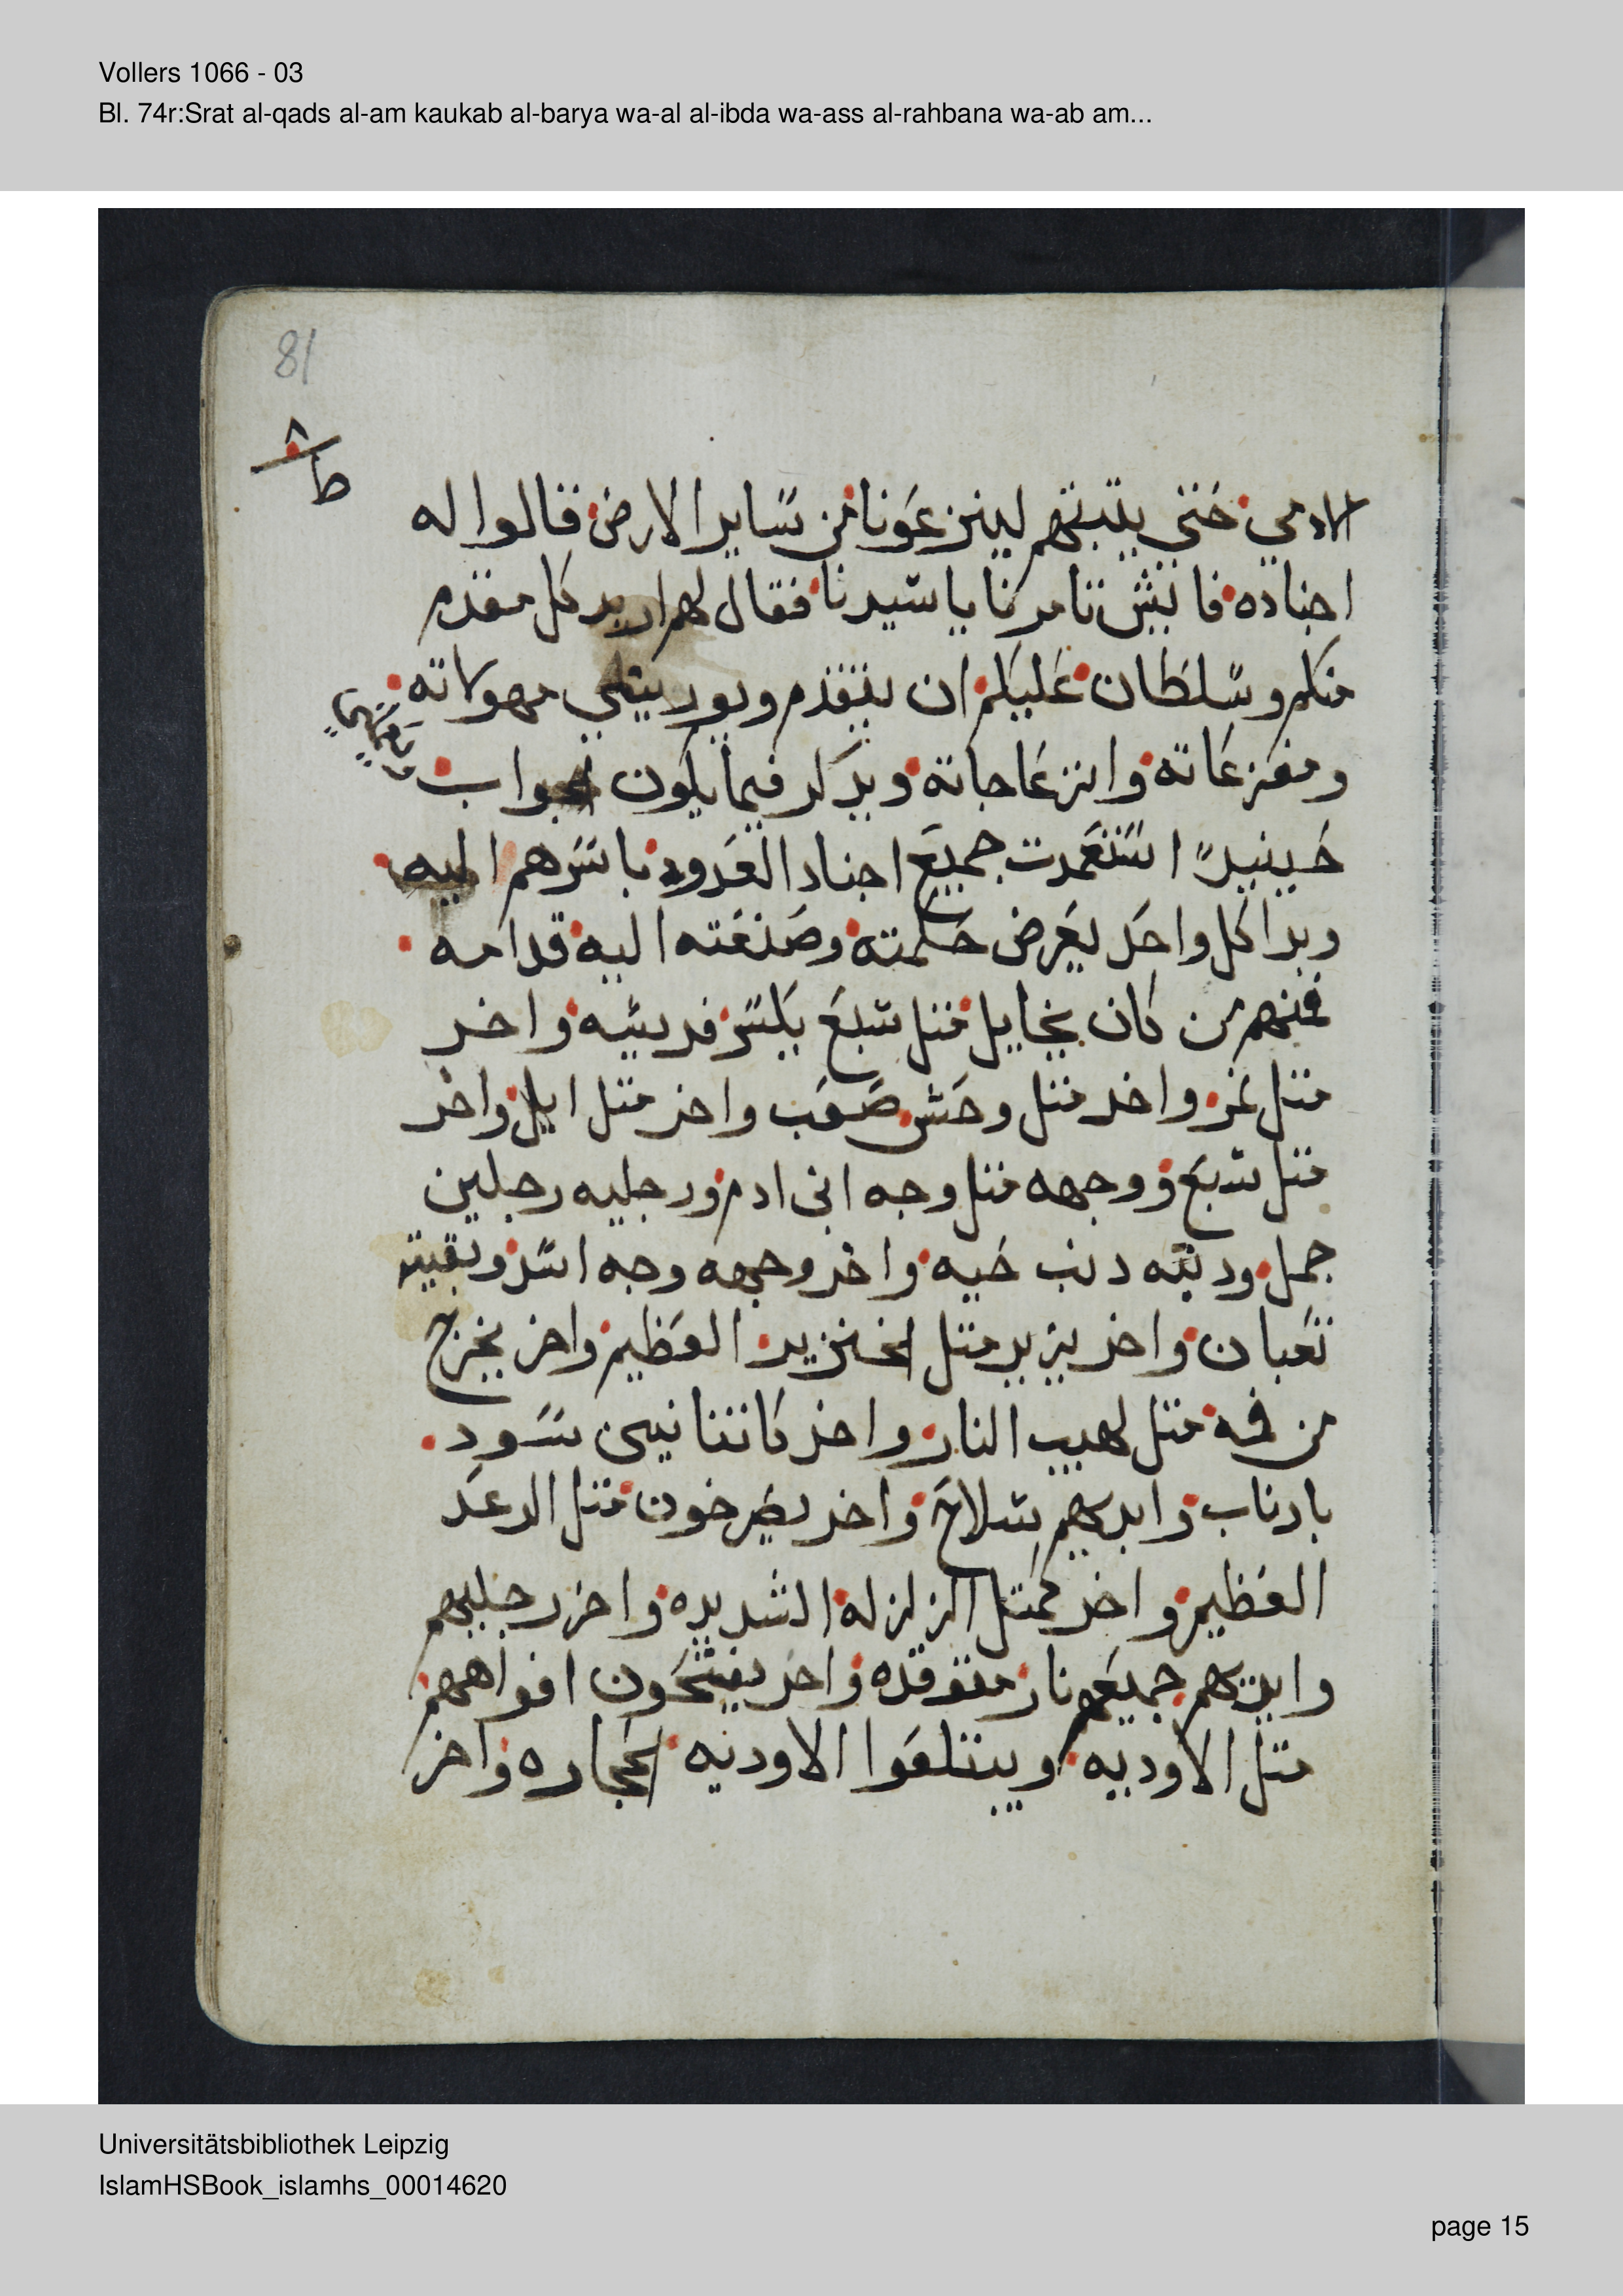 Vollers 1066 - 03
Bl. 74r:Srat al-qads al-am kaukab al-barya wa-al al-ibda wa-ass al-rahbana wa-ab am...
81
٨
ط
الادمي حتي يلبتهم لينزعونا من ساير الارض قالوا له
اجناده فا بيش تامرنا يا سيدنا فقال لهم اريد كل مقدم
منكم وسلطان عليكم ان يتقدم ويوريني مهولاته
ومفزعاته وانزعاجاته ويدكر فيما يكون الجواب
حينيدً استعدت جميع اجناد العدو باسرهم اليه
وبدا كل واحد يعرض حكمته وصنعته اليه قدامه
فمنهم من كان يخايل متل سبع يكسر فريسه واخر
متل نمر واخر متل وحش صعب واخر متل ايل واخر
متل سبع ووجهه متل وجه ابن ادم ورجليه رجلين
جمل ودنبه دنب حيه واخر وجهه وجه اسد وبقيته
تعبان واخر يزير متل الخنزير العظيم واخر يخرج
من فمه متل لهيب النار واخر كاتنانين سود
بادناب وايديهم سلاح واخر يصرخون متل الرعد
العظيم واخر كمتل الزلزله الشديده واخر رجليهم
وايديهم جميعهم نار متوقده واخر يفتحون افواههم
متل الاوديه ويبتلعوا الاوديه الحجاره واخر
Universitätsbibliothek Leipzig
IslamHSBook_islamhs_00014620
page 15